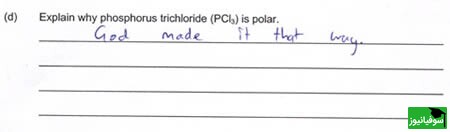 (d) Explain why phosphorus trichloride (PCl₃) is polar.
God made it that way.
سوفيانيوز